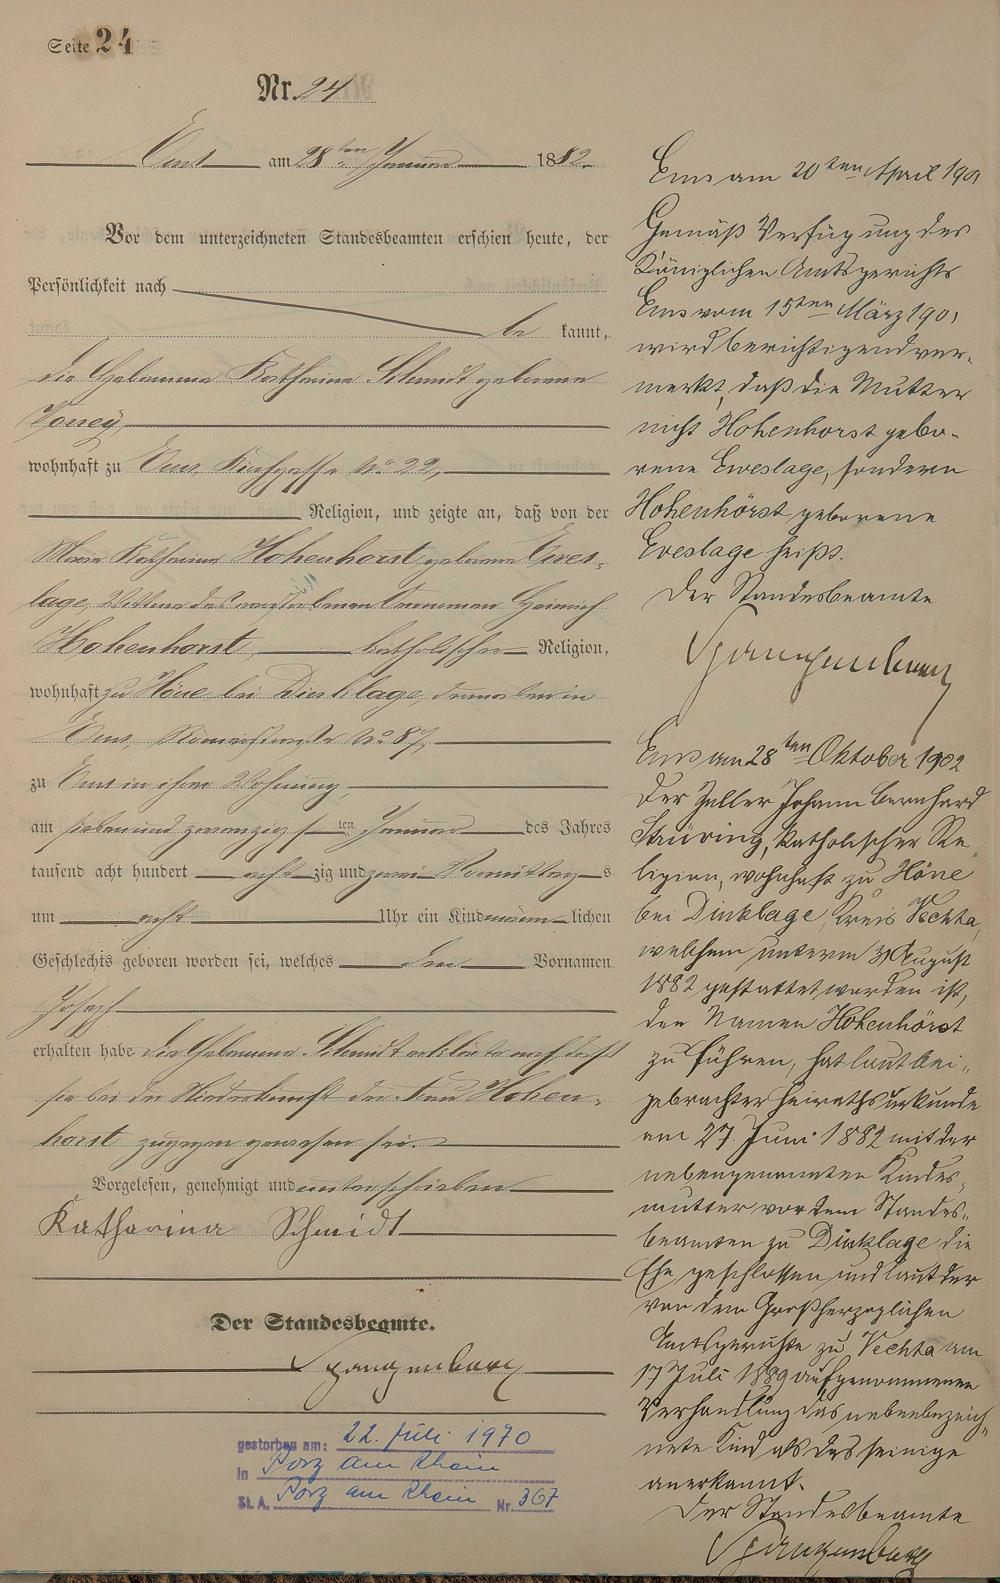 Seite 24
Nr. 24
Ems am 28ten Januar 1882.
Vor dem unterzeichneten Standesbeamten erschien heute, der
Persönlichkeit nach
be kannt,
die Hebamme Katharina Schmidt geborene
wohnhaft zu Ems, Kirchgasse No 22,
Religion, und zeigte an, daß von der
Maria Katharina Hohenhorst, geborene Eves-
lage, Wittwe des verstorbenen Heinrich
Hohenhorst, katholischer Religion,
wohnhaft zu Höne bei Dinklage, dermalen in
Ems, Römerstraße No 87,
zu Ems in ihrer Wohnung,
am sieben und zwanzigsten Januar des Jahres
tausend acht hundert acht zig und zwei Vormittags
um acht Uhr ein Kind männlichen
Geschlechts geboren worden sei, welches den Vornamen
Joseph
erhalten habe. Die Hebamme Schmidt erklärte noch daß
sie bei der Niederkunft der Frau Hohen-
horst zugegen gewesen sei.
Vorgelesen, genehmigt und unterschrieben
Katharina Schmidt
Der Standesbeamte.
Spangenberg
gestorben am: 22. Juli 1970
in Porz am Rhein
St. A. Porz am Rhein Nr. 367
Ems am 20ten April 1901
Gemäß Verfügung des
Königlichen Amtsgerichts
Ems vom 15ten März 1901
wird berichtigend ver-
merkt, daß die Mutter
nicht Hohenhorst gebo-
rene Eweslage, sondern
Hohenhörst geborene
Eveslage heißt.
Der Standesbeamte
Spangenberg
Ems am 28ten Oktober 1902
Der Zeller Johann Bernhard
Stüving, katholischer Re-
ligion, wohnhaft zu Höne
bei Dinklage, Kreis Vechta,
welchem unterm 31 August
1882 gestattet worden ist,
den Namen Hohenhörst
zu führen, hat laut bei-
gebrachter Heirathsurkunde
am 27. Juni 1882 mit der
nebengenannten Kindes-
mutter vor dem Standes-
beamten zu Dinklage die
Ehe geschlossen und laut der
von dem Großherzoglichen
Amtsgerichte zu Vechta am
17 Juli 1889 aufgenommenen
Verhandlung das nebenbezeich-
nete Kind als das seinige
anerkannt.
Der Standesbeamte
Spangenberg